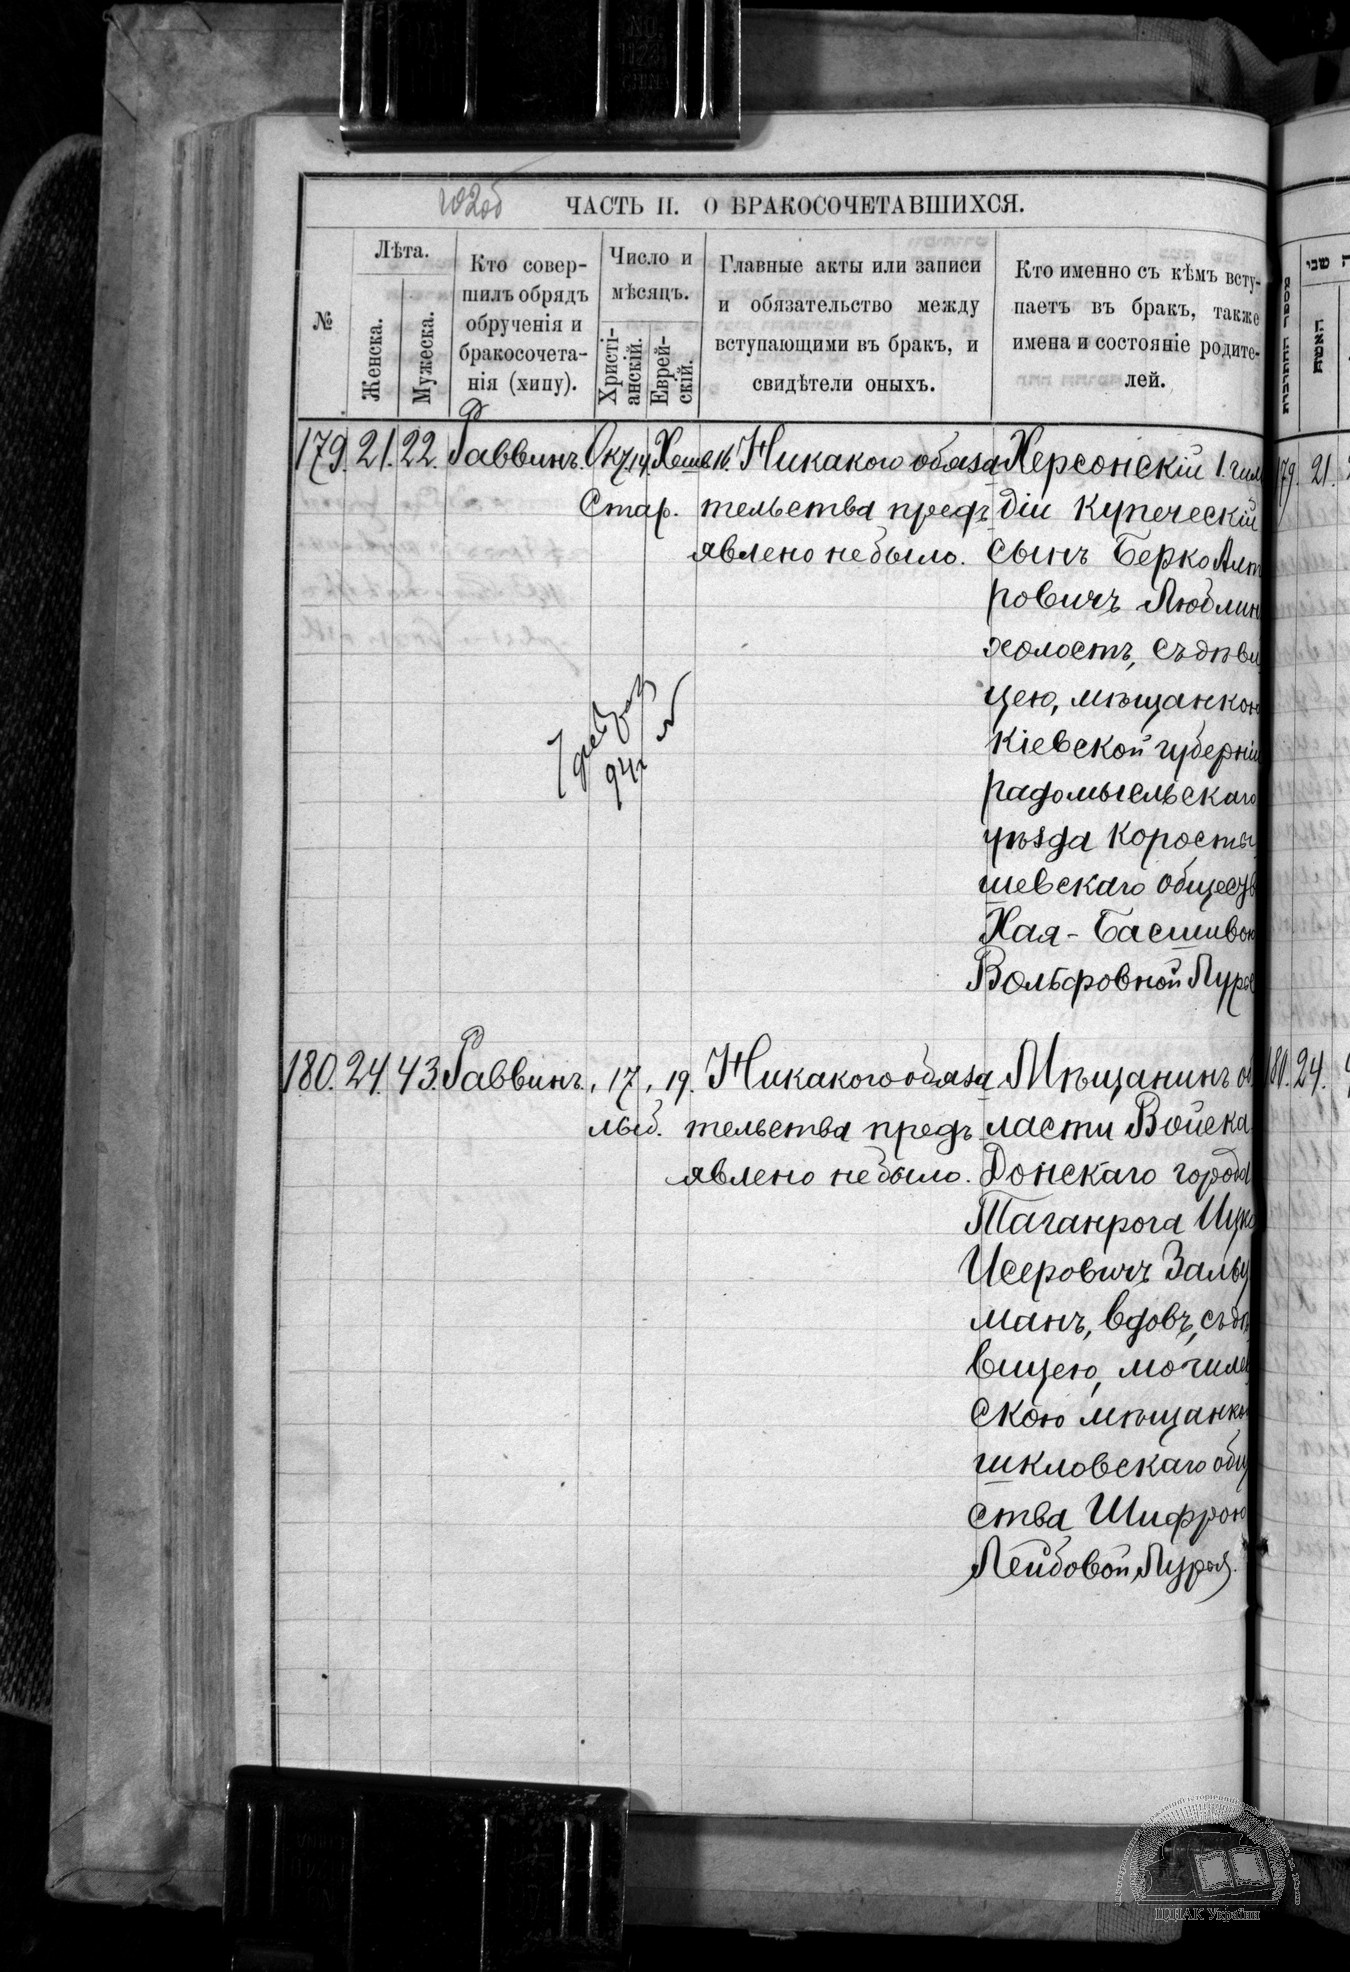 102об
ЧАСТЬ II. О БРАКОСОЧЕТАВШИХСЯ.
№
Лѣта.
Женска.
Мужеска.
Кто совер-
шилъ обрядъ
обрученія и
бракосочета-
нія (хипу).
Число и
мѣсяцъ.
Христі-
анскій.
Еврей-
скій.
Главные акты или записи
и обязательство между
вступающими въ бракъ, и
свидѣтели оныхъ.
Кто именно съ кѣмъ всту-
паетъ въ бракъ, также
имена и состояніе родите-
лей.
179. 21. 22. Раввинъ. Окт. 14. Хешв. 16. Никакого обяза
Стар. тельства предъ
явлено не было.
Херсонскій 1. гил
діи Купеческій
сынъ Берко
ровичъ Люблин
холостъ, съ дѣви
цею, мѣщанкою
Кіевской губерніи
радомысльскаго
уѣзда Коросты
шевскаго общеув
Хая-Басшивою
Вольфовной
94г
180. 24. 43. Раввинъ. „ 17 „ 19. Никакого обяза
тельства предъ
явлено не было.
Мѣщанинъ об
ласти Войска
Донскаго города
Таганрога Ицко
Исеровичъ Зальц
манъ, вдовъ, съ дѣ
вицею, могилев
скою мѣщанкою
шкловскаго общ
ства Шифрою
Лейбовой
179. 21.
180. 24.
שני
האשה
ЦДІАК України